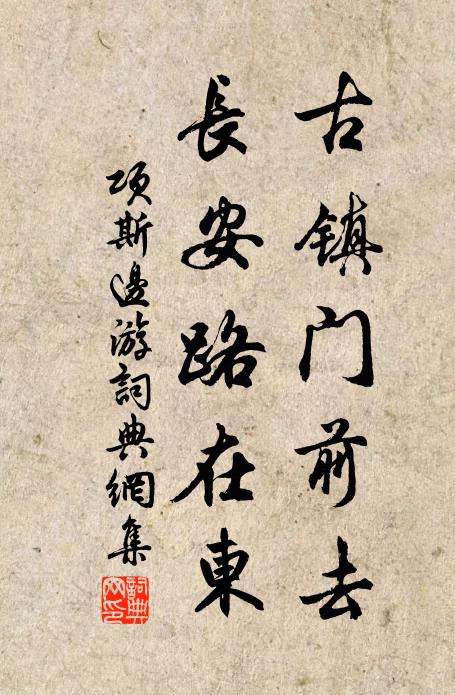 古镇门前去
長安路在東
項斯邊游詞典網集
詞典网印